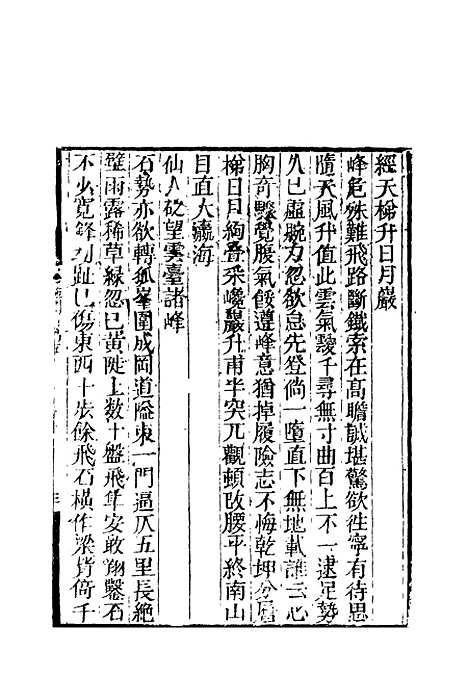 經天梯升日月巖
峰危殊難飛路斷鐵索在高瞻誠堪驚欲徃寧有待思
隨天風升值此雲氣靉千尋無寸曲百上不一逮足勢
久已虛腕力忽欲怠先登倘一墮直下無地載誰云心
胸奇繫覺腹氣餒遵峰意猶掉履險志不悔乾坤分層
梯日月絢疊采巉巖升甫半突兀觀頓改腰平終南山
目直大瀛海
仙人砭望雲臺諸峰
石勢亦欲轉孤峯圍成岡道隘東一門逼仄五里長絶
壁雨露稀草緑忽已黃陡上數十盤飛隼安敢翔鑿石
不少寛鋒刓趾已傷東西十步餘飛石橫作梁背倚千